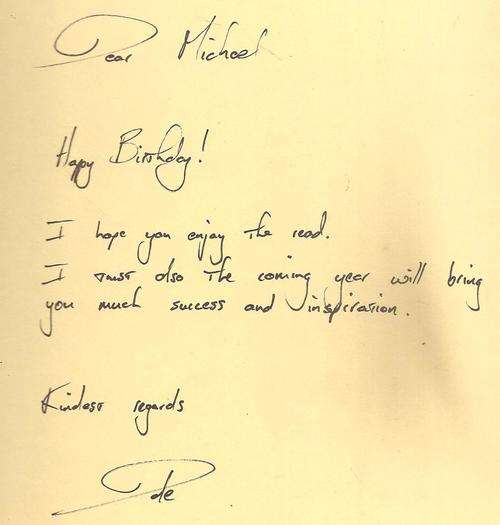 Dear Michael
Happy Birthday!
I hope you enjoy the read.
I trust also the coming year will bring
you much success and inspiration.
Kindest regards